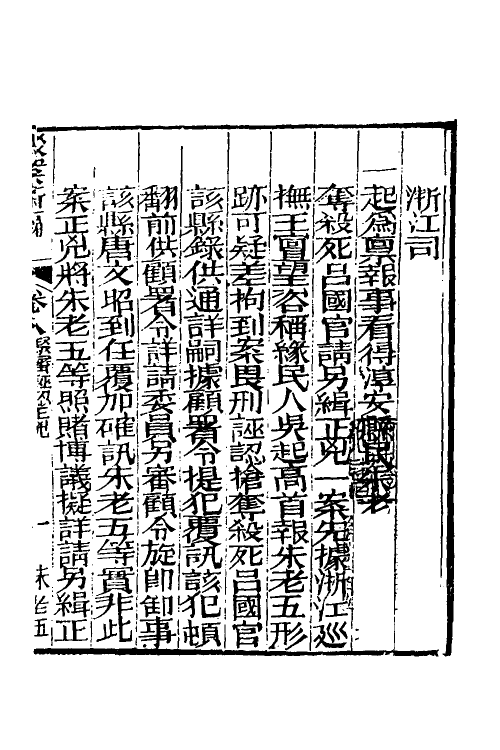 浙江司
一起為稟報事看得淳安縣民朱老
奪殺死呂國官請另緝正兇一案先據浙江巡
撫王亶望咨稱緣民人吳起高首報朱老五形
跡可疑差拘到案畏刑誣認搶奪殺死呂國官
該縣錄供通詳嗣據顧署令提犯覆訊該犯頓
翻前供顧署令詳請委員另審顧令旋即卸事
該縣唐文昭到任覆加確訊朱老五等實非此
案正兇將朱老五等照賭博議擬詳請另緝正
卷八
一
朱老五